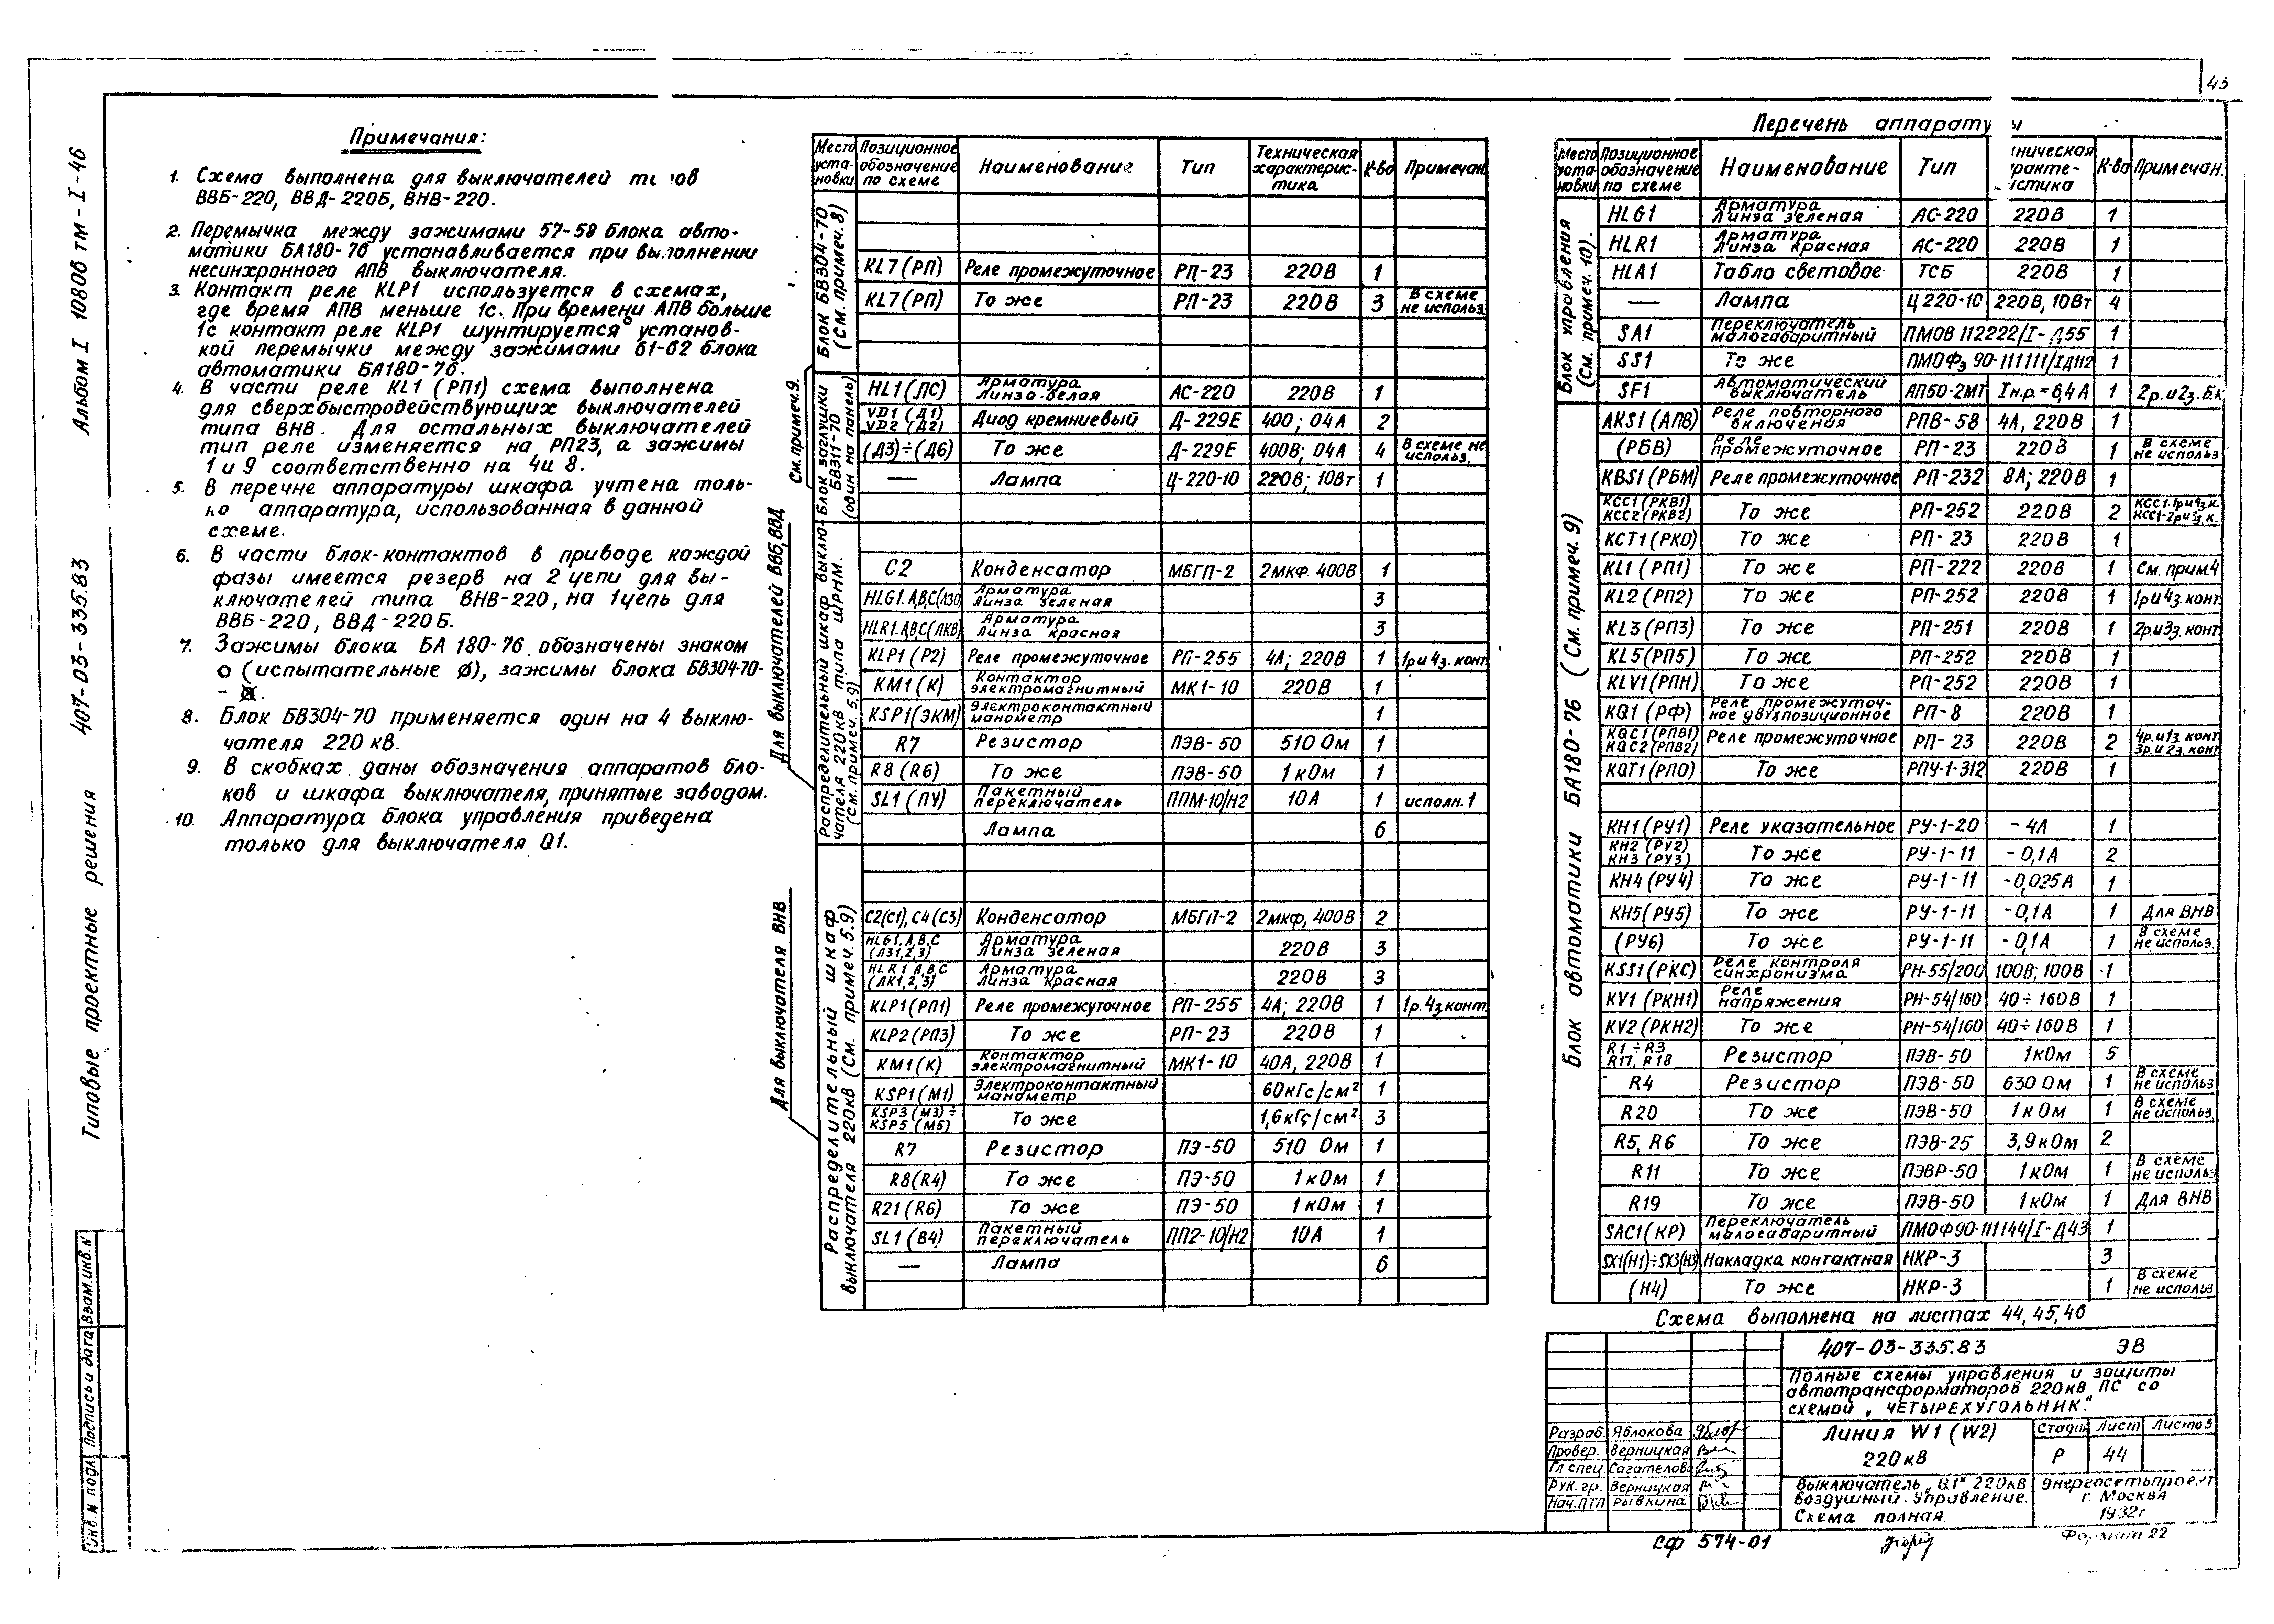 43
Альбом I 10806 тм-I-46
407-03-335.83
Типовые проектные решения
Примечания:
1. Схема выполнена для выключателей
ВВБ-220, ВВД-220Б, ВНВ-220.
2. Перемычка между зажимами 57-58 блока авто-
матики БА180-76 устанавливается при выполнении
несинхронного АПВ выключателя.
3. Контакт реле KLP1 используется в схемах,
где время АПВ меньше 1с. При времени АПВ больше
1с контакт реле KLP1 шунтируется установ-
кой перемычки между зажимами 61-62 блока
автоматики БА180-76.
4. В части реле KL1 (РП1) схема выполнена
для сверхбыстродействующих выключателей
типа ВНВ. Для остальных выключателей
тип реле изменяется на РП23, а зажимы
1 и 9 соответственно на 4 и 8.
5. В перечне аппаратуры шкафа учтена толь-
ко аппаратура, использованная в данной
схеме.
6. В части блок-контактов в приводе каждой
фазы имеется резерв на 2 цепи для вы-
ключателей типа ВНВ-220, на 1 цепь для
ВВБ-220, ВВД-220Б.
7. Зажимы блока БА 180-76 обозначены знаком
о (испытательные ø), зажимы блока БВ304-70-
8. Блок БВ304-70 применяется один на 4 выклю-
чателя 220 кв.
9. В скобках даны обозначения аппаратов бло-
ков и шкафа выключателя, принятые заводом.
10. Аппаратура блока управления приведена
только для выключателя Q1.
Место уста-новки Позиционное обозначение по схеме Наименование Тип Техническая характерис-тика К-во Примечан.
Блок БВ304-70 (См. примеч. 8)
KL7 (РП) Реле промежуточное РП-23 220В 1
KL7 (РП) То же РП-23 220В 3 В схеме не использ.
См. примеч. 9.
Блок заглушки БВ311-70 (один на панель)
HL1 (ЛС) Арматура Линза белая АС-220 220В 1
VD1 (Д1) VD2 (Д2) Диод кремниевый Д-229Е 400; 04А 2
(Д3)÷(Д6) То же Д-229Е 400В; 04А 4 В схеме не использ.
— Лампа Ц-220-10 220В; 10Вт 1
Для выключателей ВВБ, ВВД
Распределительный шкаф выклю-чателя 220кв типа ШРНМ. (см. примеч. 5,9)
C2 Конденсатор МБГП-2 2мкф. 400В 1
HLG1.A,B,C(ЛЗО) Арматура Линза зеленая 3
HLR1.A,B,C(ЛКВ) Арматура Линза красная 3
KLP1 (Р2) Реле промежуточное РП-255 4А; 220В 1 1р и 4з. конт.
KM1 (К) Контактор электромагнитный МК1-10 220В 1
KSP1(ЭКМ) Электроконтактный манометр 1
R7 Резистор ПЭВ-50 510 Ом 1
R8 (R6) То же ПЭВ-50 1кОм 1
SL1 (ПУ) Пакетный переключатель ППМ-10/Н2 10А 1 исполн. 1
Лампа 6
Для выключателя ВНВ
Распределительный шкаф выключателя 220кв (См. примеч. 5.9)
C2(C1), C4(C3) Конденсатор МБГП-2 2мкф, 400В 2
HLG1.A,B,C (ЛЗ1,2,3) Арматура Линза зеленая 220В 3
HLR1 A,B,C (ЛК1,2,3) Арматура Линза красная 220В 3
KLP1(РП1) Реле промежуточное РП-255 4А; 220В 1 1р. 4з конт.
KLP2 (РП3) То же РП-23 220В 1
KM1(К) Контактор электромагнитный МК1-10 40А, 220В 1
KSP1 (М1) Электроконтактный манометр 60кГс/см² 1
KSP3 (М3)÷ KSP5 (М5) То же 1,6кГс/см² 3
R7 Резистор ПЭ-50 510 Ом 1
R8(R4) То же ПЭ-50 1кОм 1
R21 (R6) То же ПЭ-50 1кОм 1
SL1 (В4) Пакетный переключатель ПП2-10/Н2 10А 1
— Лампа 6
Перечень аппаратуры
Место уста-новки Позиционное обозначение по схеме Наименование Тип К-во Примечан.
Блок управления (См. примеч. 10).
HLG1 Арматура Линза зеленая АС-220 220В 1
HLR1 Арматура Линза красная АС-220 220В 1
HLA1 Табло световое ТСБ 220В 1
— Лампа Ц 220-10 220В, 10Вт 4
SA1 Переключатель малогабаритный ПМОВ 112222/I-Д55 1
SS1 То же ПМОФз 90-111111/IД112 1
SF1 Автоматический выключатель АП50-2МТ Iн.р.=6,4А 1 2р. и 2з. б.к
Блок автоматики БА180-76 (См. примеч. 9)
AKS1 (АПВ) Реле повторного включения РПВ-58 4А, 220В 1
(РБВ) Реле промежуточное РП-23 220В 1 В схеме не использ
KBS1 (РБМ) Реле промежуточное РП-232 8А; 220В 1
KCC1 (РКВ1) KCC2 (РКВ2) То же РП-252 220В 2 KCC1-1р и 4з.к. KCC1-2р и 3з.к.
KCT1 (РКО) То же РП-23 220В 1
KL1 (РП1) То же РП-222 220В 1 См. прим. 4
KL2 (РП2) То же РП-252 220В 1 1р и 4з. конт.
KL3 (РП3) То же РП-251 220В 1 2р. и 3з. конт
KL5(РП5) То же РП-252 220В 1
KLV1 (РПН) То же РП-252 220В 1
KQ1 (РФ) Реле промежуточ-ное двухпозиционное РП-8 220В 1
KQC1 (РПВ1) KQC2 (РПВ2) Реле промежуточное РП-23 220В 2 4р. и 1з. конт 3р. и 2з. конт
KQT1 (РПО) То же РПУ-1-312 220В 1
KH1 (РУ1) Реле указательное РУ-1-20 -4А 1
KH2 (РУ2) KH3 (РУ3) То же РУ-1-11 -0,1А 2
KH4 (РУ4) То же РУ-1-11 -0,025А 1
KH5(РУ5) То же РУ-1-11 -0,1А 1 Для ВНВ
(РУ6) То же РУ-1-11 -0,1А 1 В схеме не использ.
KSS1 (РКС) Реле контроля синхронизма РН-55/200 100В; 100В 1
KV1 (РКН1) Реле напряжения РН-54/160 40÷160В 1
KV2 (РКН2) То же РН-54/160 40÷160В 1
R1÷R3 R17, R18 Резистор ПЭВ-50 1кОм 5
R4 Резистор ПЭВ-50 630 Ом 1 В схеме не использ
R20 То же ПЭВ-50 1кОм 1 В схеме не использ.
R5, R6 То же ПЭВ-25 3,9кОм 2
R11 То же ПЭВР-50 1кОм 1 В схеме не использ
R19 То же ПЭВ-50 1кОм 1 Для ВНВ
SAC1(КР) Переключатель малогабаритный ПМОФ90-111144/I-Д43 1
SX1(Н1)÷SX3(Н3) Накладка контактная НКР-3 3
(Н4) То же НКР-3 1 В схеме не использ
Схема выполнена на листах 44, 45, 46
407-03-335.83 ЭВ
Полные схемы управления и защиты
автотрансформаторов 220кв ПС со
схемой „ЧЕТЫРЕХУГОЛЬНИК."
Разраб. Яблокова
Провер. Верницкая
Гл спец. Сагателова
Рук. гр. Верницкая
Нач. ПТП Рывкина
Линия W1 (W2)
220 кв
Стадия Лист Листов
Р 44
Выключатель „Q1" 220кв
воздушный. Управление.
Схема полная
Энергосетьпроект
г. Москва
1982г
Инв. N подл. Подпись и дата Взам. инв. N
СФ 574-01
Формат 22